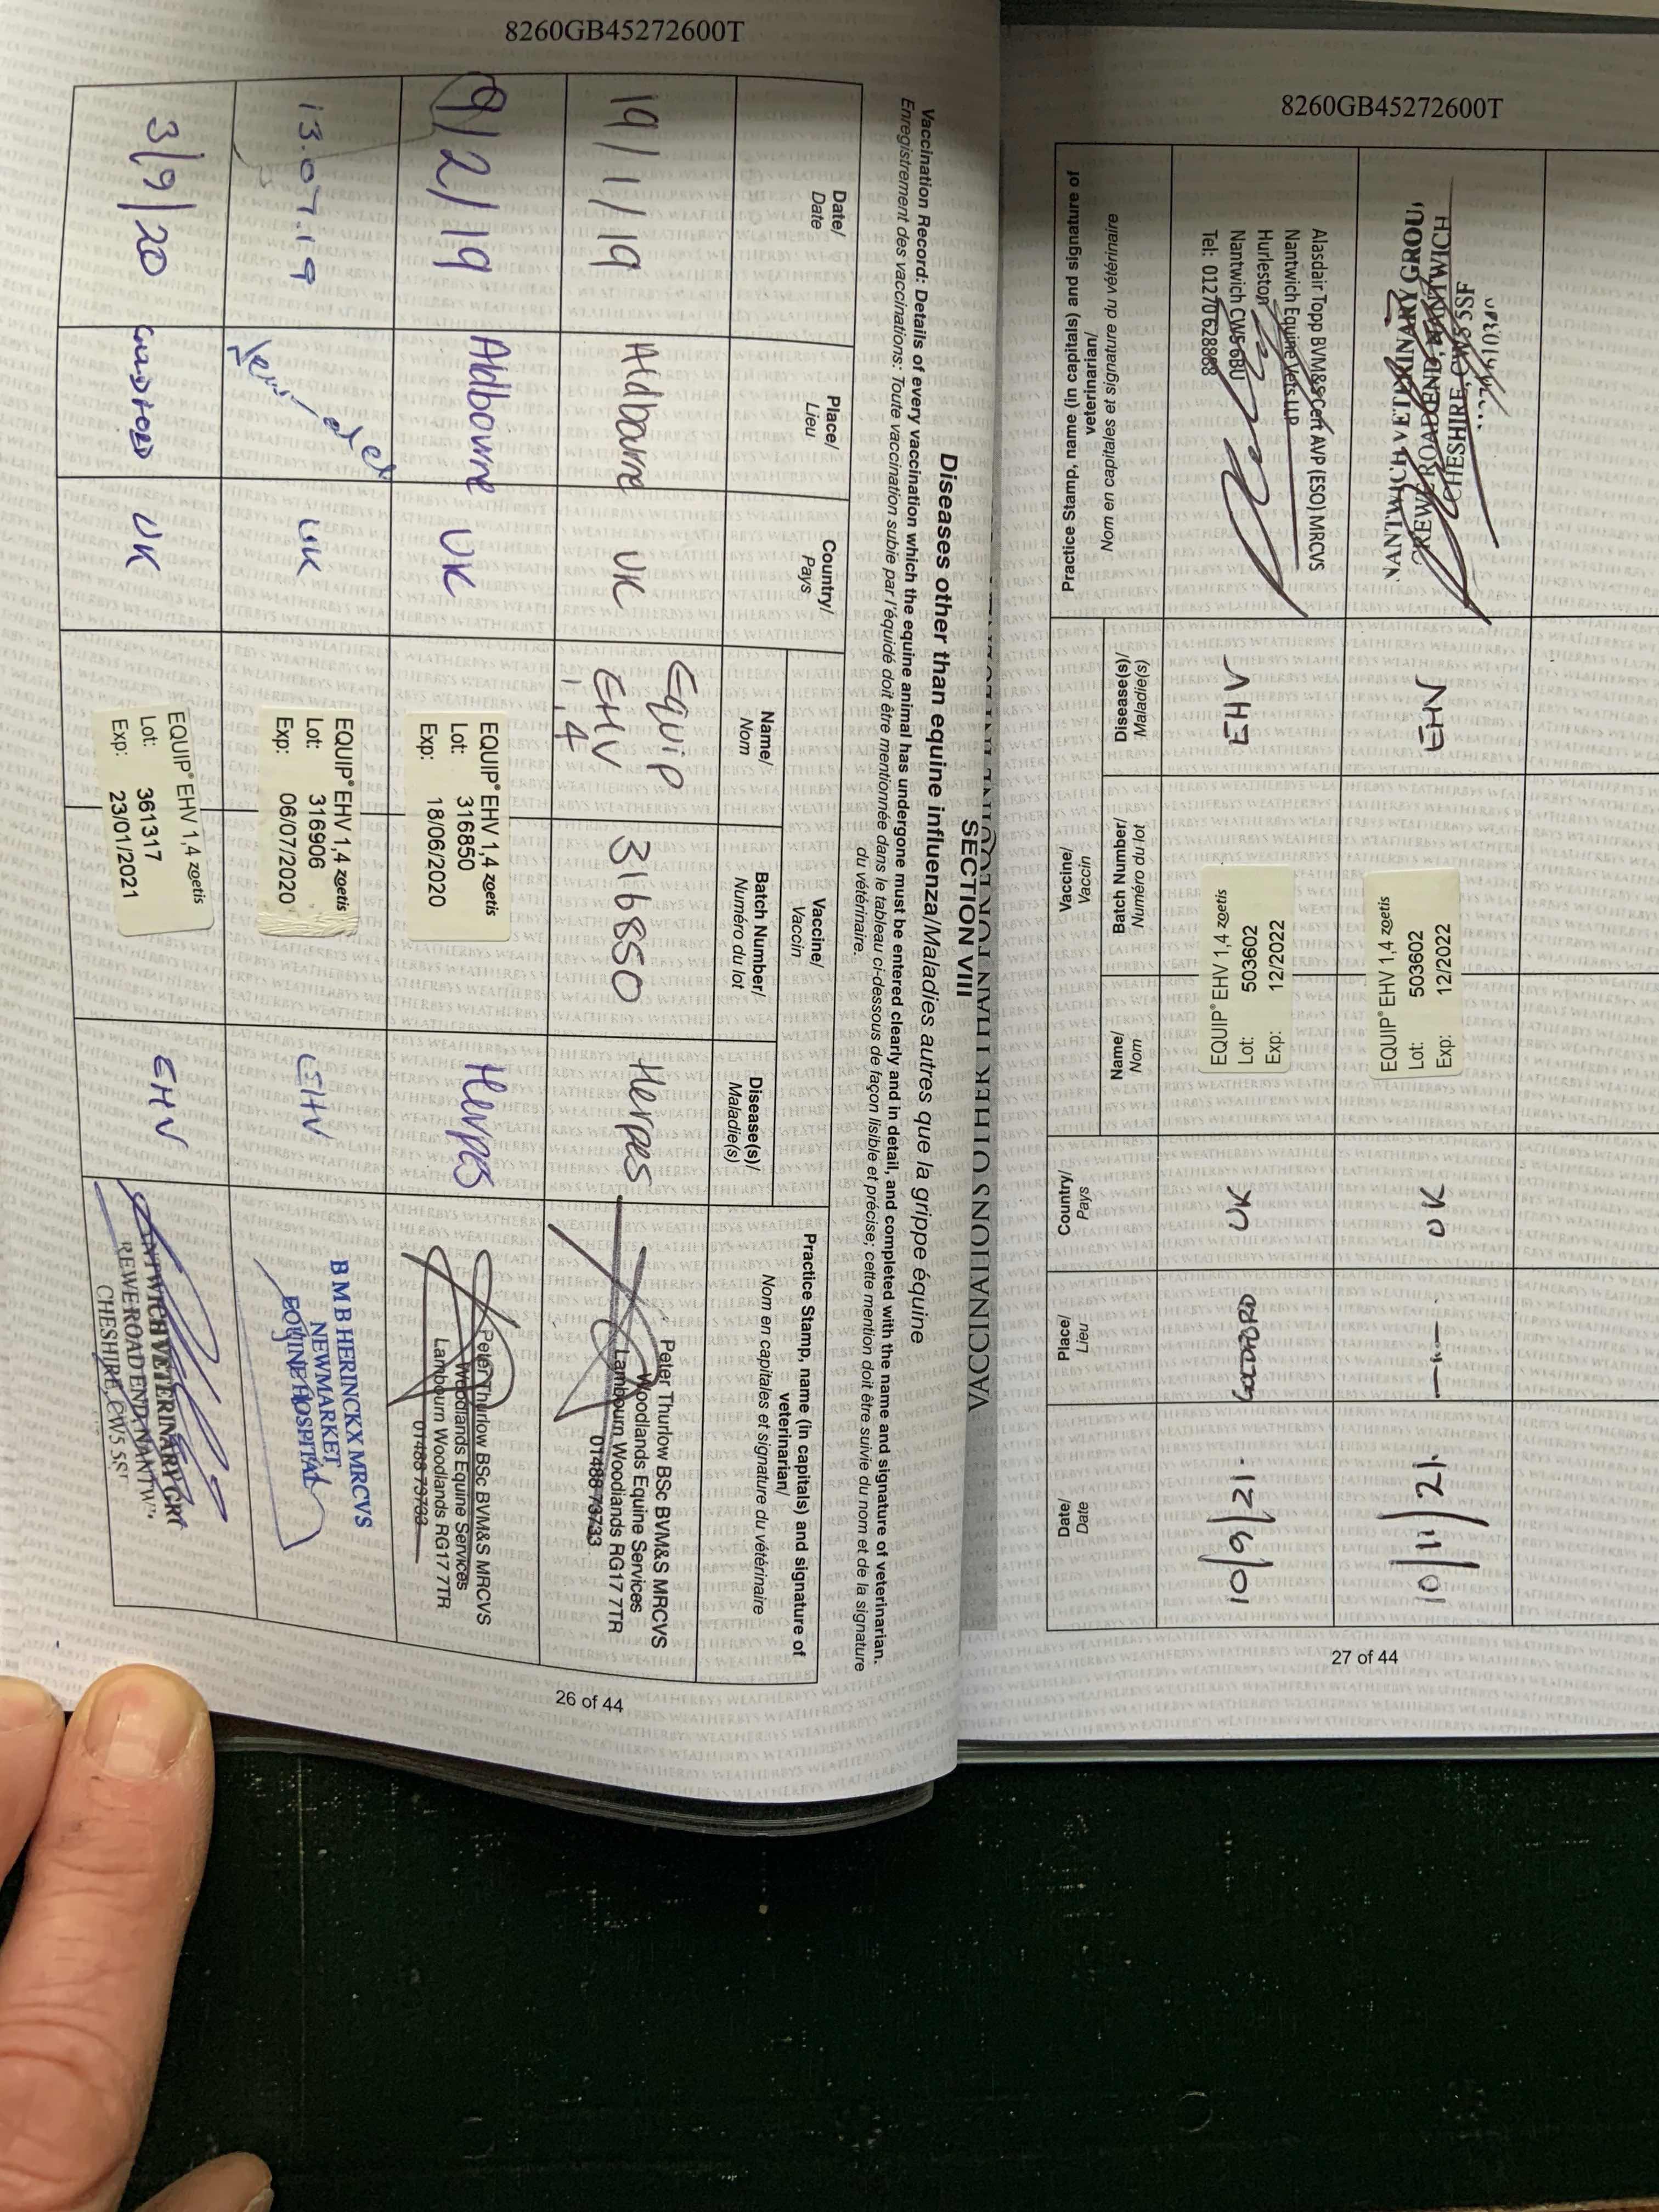 8260GB45272600T
VACCINATIONS OTHER THAN EQUINE INFLUENZA
SECTION VIII
Diseases other than equine influenza/Maladies autres que la grippe équine
Vaccination Record: Details of every vaccination which the equine animal has undergone must be entered clearly and in detail, and completed with the name and signature of veterinarian.
Enregistrement des vaccinations: Toute vaccination subie par l'équidé doit être mentionnée dans le tableau ci-dessous de façon lisible et précise; cette mention doit être suivie du nom et de la signature
du vétérinaire.
Date/
Date
Place/
Lieu
Country/
Pays
Vaccine/
Vaccin
Name/
Nom
Batch Number/
Numéro du lot
Disease(s)/
Maladie(s)
Practice Stamp, name (in capitals) and signature of
veterinarian/
Nom en capitales et signature du vétérinaire
19/1/19
Aldbourne
UK
Equip
EHV
1,4
316850
Herpes
Peter Thurlow BSc BVM&S MRCVS
Woodlands Equine Services
Lambourn Woodlands RG17 7TR
01488 73733
9/2/19
Aldbourne
UK
EQUIP® EHV 1,4 zoetis
Lot: 316850
Exp: 18/06/2020
Herpes
Peter Thurlow BSc BVM&S MRCVS
Woodlands Equine Services
Lambourn Woodlands RG17 7TR
01488 73733
13.07.19
UK
EQUIP® EHV 1,4 zoetis
Lot: 316906
Exp: 06/07/2020
EHV
B M B HERINCKX MRCVS
NEWMARKET
EQUINE HOSPITAL
3/9/20
UK
EQUIP® EHV 1,4 zoetis
Lot: 361317
Exp: 23/01/2021
EHV
NANTWICH VETERINARY GR
REWE ROAD END, NANTW
CHESHIRE, CW5 5SF
26 of 44
8260GB45272600T
Date/
Date
Place/
Lieu
Country/
Pays
Vaccine/
Vaccin
Name/
Nom
Batch Number/
Numéro du lot
Disease(s)/
Maladie(s)
Practice Stamp, name (in capitals) and signature of
veterinarian/
Nom en capitales et signature du vétérinaire
10/9/21.
UK
EQUIP® EHV 1,4 zoetis
Lot: 503602
Exp: 12/2022
EHV
Alasdair Topp BVM&S Cert AVP (ESO) MRCVS
Nantwich Equine Vets LLP
Hurleston
Nantwich CW5 6BU
Tel: 01270 628888
10/11/21.
UK
EQUIP® EHV 1,4 zoetis
Lot: 503602
Exp: 12/2022
EHV
NANTWICH VETERINARY GROU
CREWE ROAD END, NANTWICH
CHESHIRE, CW5 5SF
27 of 44